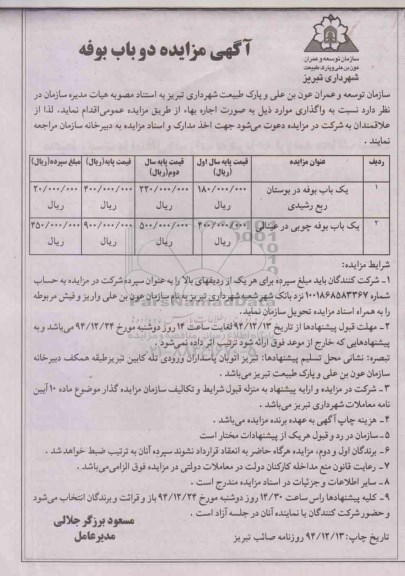 آگهی مزایده دو باب بوفه
سازمان توسعه و عمران
عون بن علی و پارک طبیعت
شهرداری تبریز
سازمان توسعه و عمران عون بن علی و پارک طبیعت شهرداری تبریز به استناد مصوبه هیات مدیره سازمان در
نظر دارد نسبت به واگذاری موارد ذیل به صورت اجاره بهاء از طریق مزایده عمومی اقدام نماید. لذا از
علاقمندان به شرکت در مزایده دعوت می‌شود جهت اخذ مدارک و اسناد مزایده به دبیرخانه سازمان مراجعه
نمایند .
ردیف عنوان مزایده قیمت پایه سال اول (ریال) قیمت پایه سال دوم(ریال) قیمت پایه(ریال) مبلغ سپرده(ریال)
۱ یک باب بوفه در بوستان ربع رشیدی ۱۸۰/۰۰۰/۰۰۰ ریال ۲۲۰/۰۰۰/۰۰۰ ریال ۴۰۰/۰۰۰/۰۰۰ ریال ۲۰/۰۰۰/۰۰۰ ریال
۲ یک باب بوفه چوبی در عینالی ۴۰۰/۰۰۰/۰۰۰ ریال ۵۰۰/۰۰۰/۰۰۰ ریال ۹۰۰/۰۰۰/۰۰۰ ریال ۴۵۰/۰۰۰/۰۰۰ ریال
شرایط مزایده:
۱- شرکت کنندگان باید مبلغ سپرده برای هر یک از ردیفهای بالا را به عنوان سپرده شرکت در مزایده به حساب
شماره ۱۰۰۱۸۶۸۵۸۳۳۶۷ نزد بانک شهر شعبه شهرداری تبریز به نام سازمان عون بن علی واریز و فیش مربوطه
را به همراه اسناد مزایده تحویل سازمان نماید.
۲- مهلت قبول پیشنهادها از تاریخ ۹۴/۱۲/۱۳ لغایت ساعت ۱۴ روز دوشنبه مورخ ۹۴/۱۲/۲۴ می‌باشد و به
پیشنهادهایی که خارج از موعد فوق ارائه شود ترتیب اثر داده نمی‌شود .
تبصره: نشانی محل تسلیم پیشنهادها: تبریز اتوبان پاسداران ورودی تله کابین تبریز طبقه همکف دبیرخانه
سازمان عون بن علی و پارک طبیعت تبریز می‌باشد .
۳- شرکت در مزایده و ارایه پیشنهاد به منزله قبول شرایط و تکالیف سازمان مزایده گذار موضوع ماده ۱۰ آیین
نامه معاملات شهرداری تبریز می‌باشد .
۴- هزینه چاپ آگهی به عهده برنده مزایده می‌باشد .
۵- سازمان در رد و قبول هر یک از پیشنهادات مختار است
۶- برندگان اول و دوم، مزایده هرگاه حاضر به انعقاد قرارداد نشوند سپرده آنان به ترتیب ضبط خواهد شد .
۷- رعایت قانون منع مداخله کارکنان دولت در معاملات دولتی در مزایده فوق الزامی می‌باشد .
۸- سایر اطلاعات و جزئیات در اسناد مزایده مندرج است .
۹- کلیه پیشنهادها راس ساعت ۱۴/۳۰ روز دوشنبه مورخ ۹۴/۱۲/۲۴ باز و قرائت و برندگان انتخاب می‌شود
و حضور شرکت کنندگان یا نماینده آنان در جلسه آزاد است .
مسعود برزگر جلالی
مدیرعامل
تاریخ چاپ: ۹۴/۱۲/۱۳ روزنامه صائب تبریز